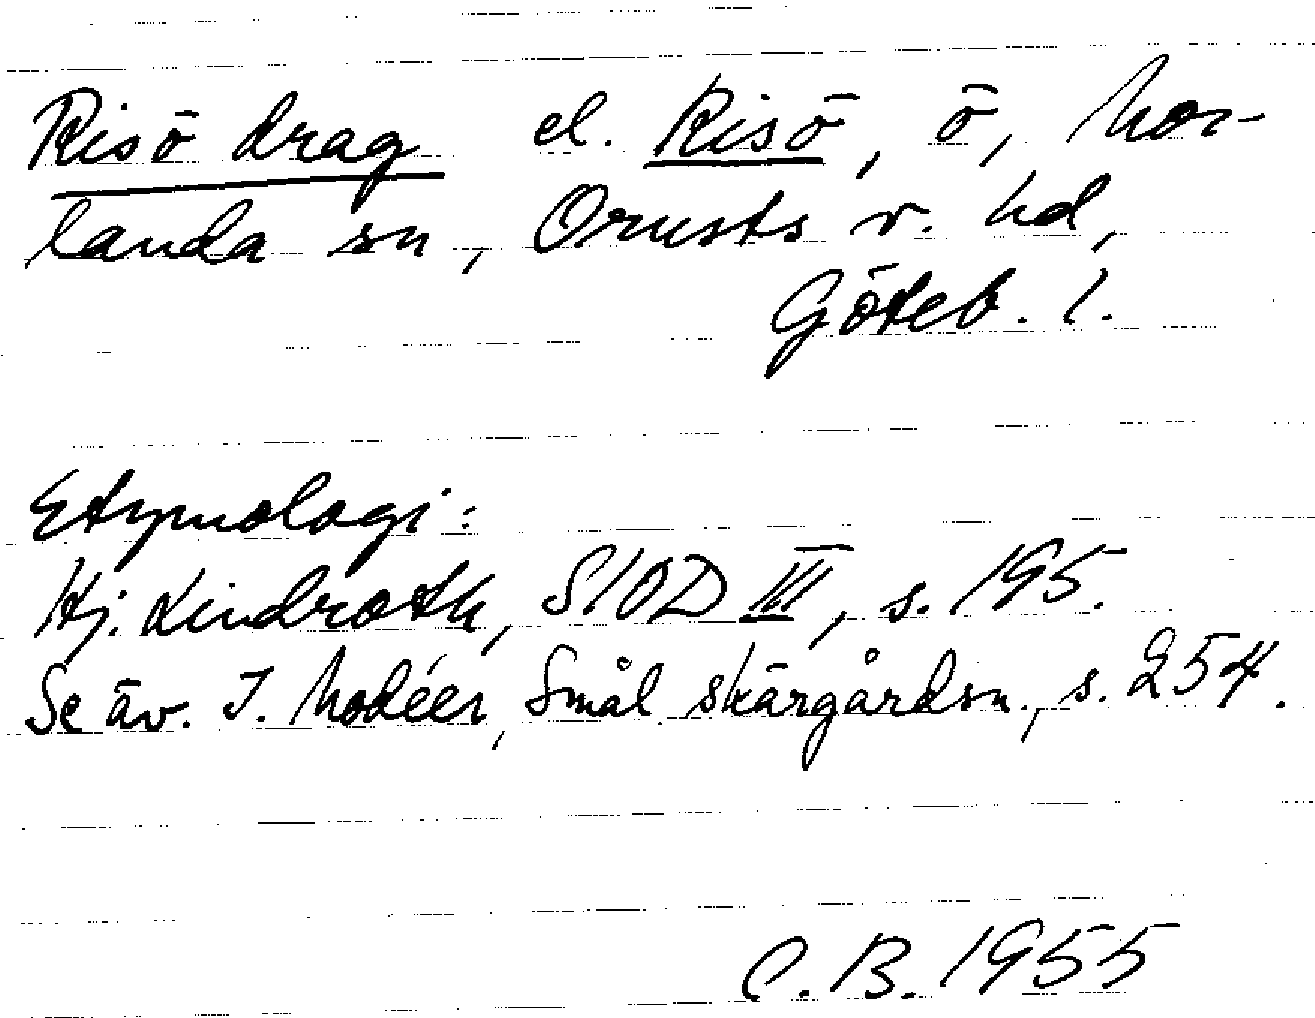 Risö drag el. Risö, ö, Mor-
landa sn, Orusts v. hd,
Göteb. l.
Etymologi:
Hj. Lindroth, SIOD III, s. 195.
Se äv. I. Modéer, Smål. skärgårdsn., s. 254.
C.B. 1955